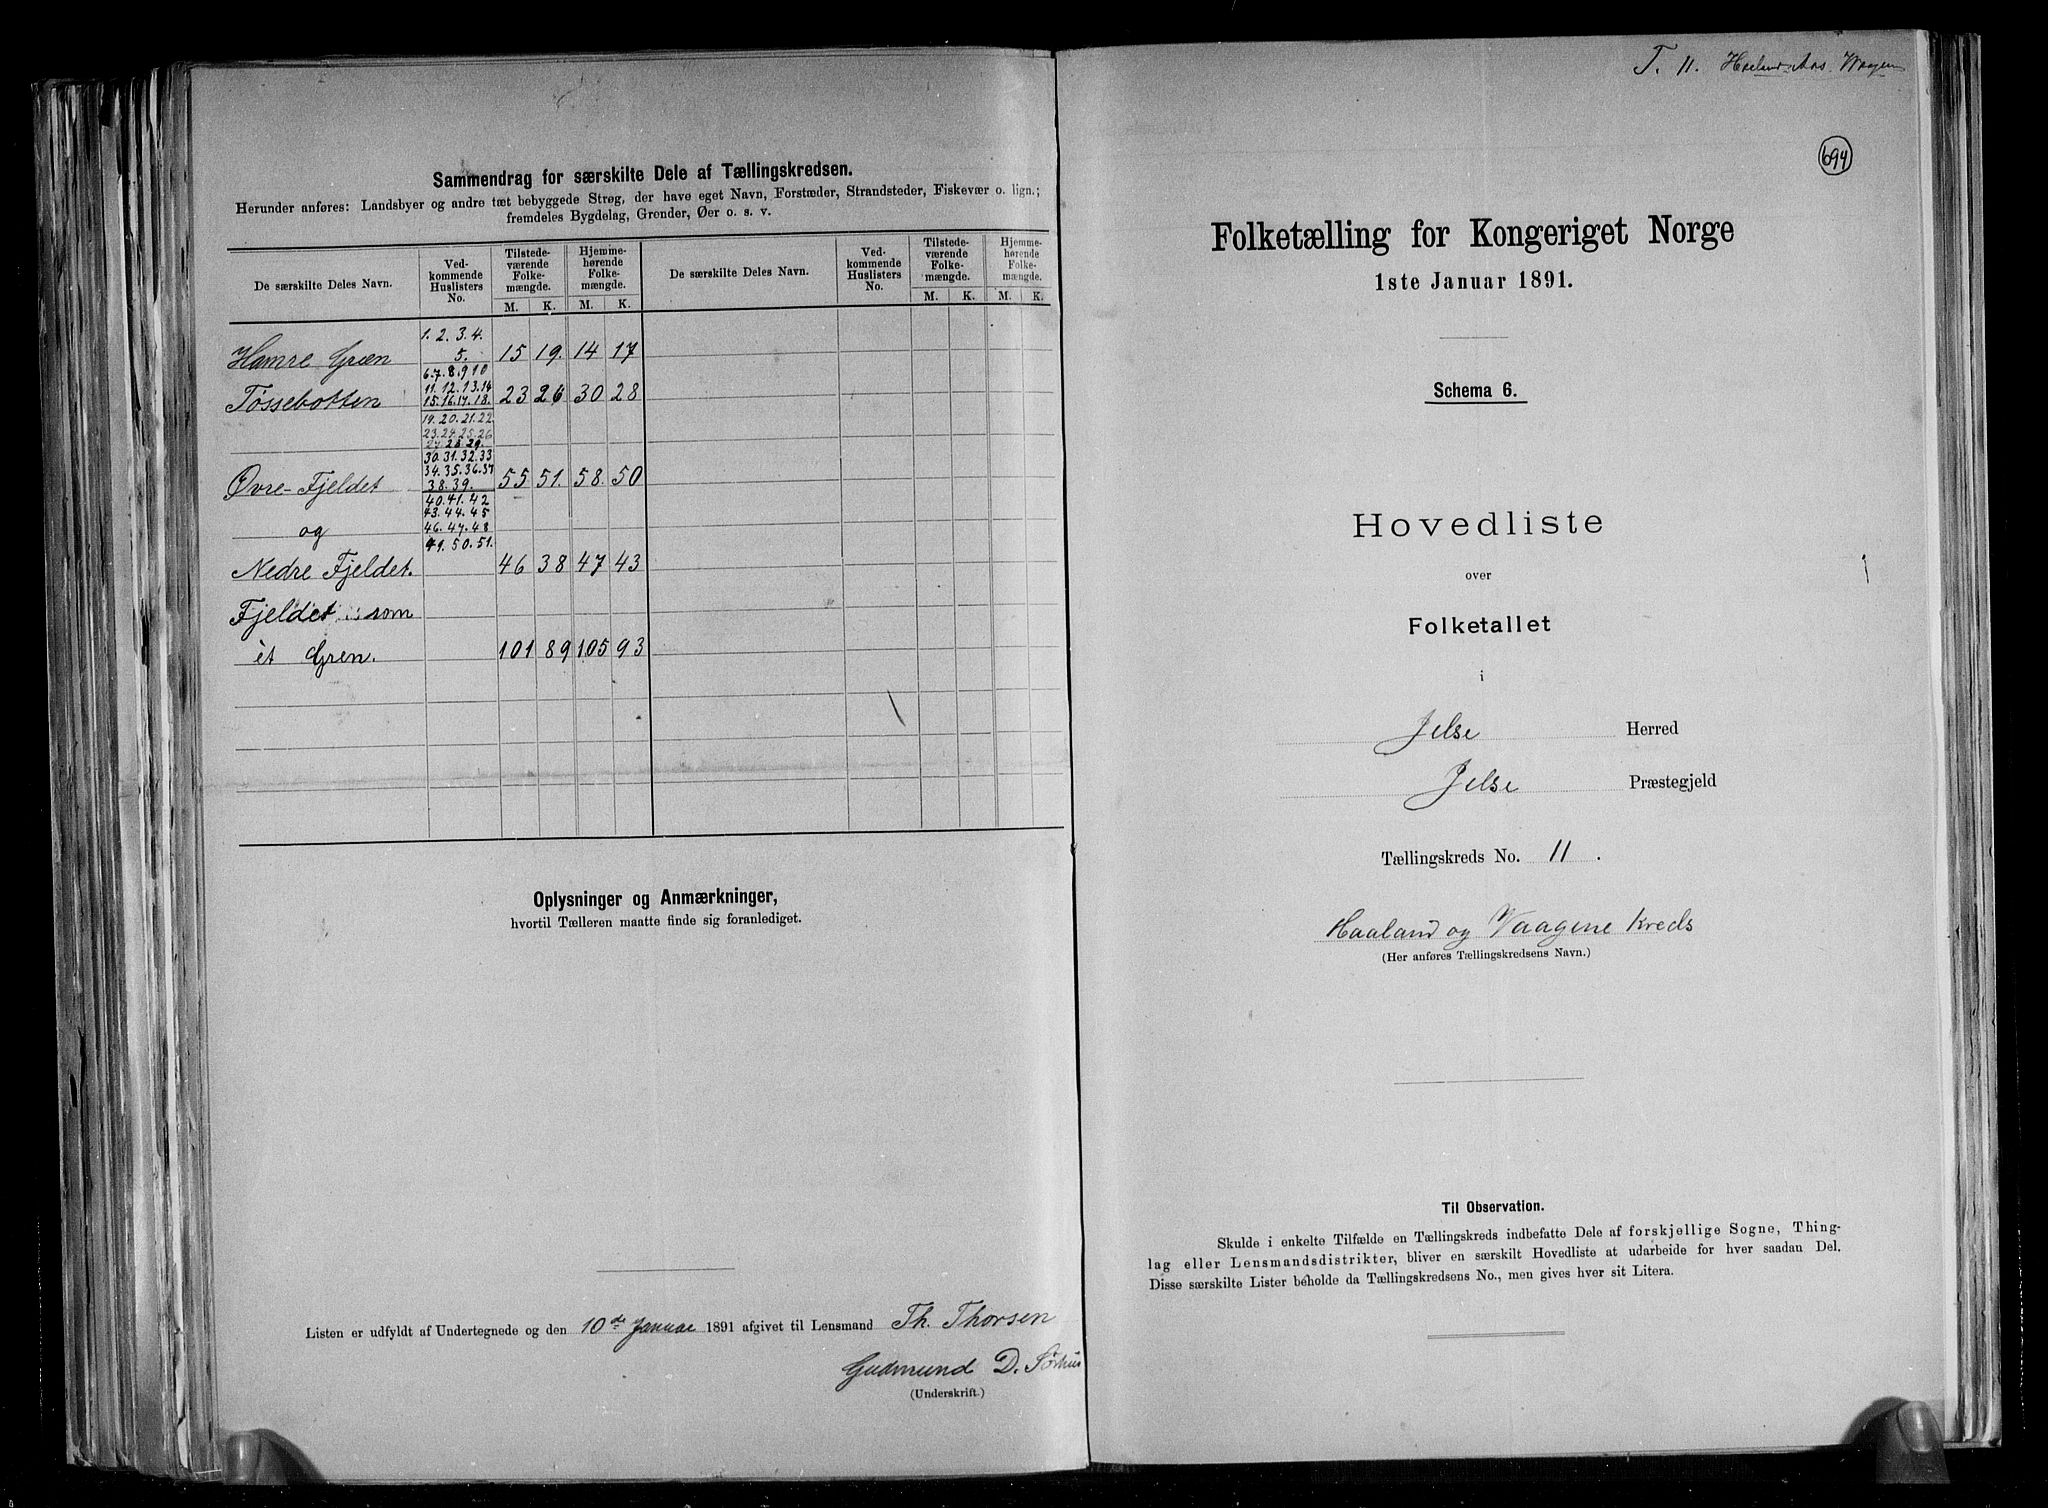 Sammendrag for særskilte Dele af Tællingskredsen.
Herunder anføres: Landsbyer og andre tæt bebyggede Strøg, der have eget Navn, Forstæder, Strandsteder, Fiskevær o. lign.;
fremdeles Bygdelag, Grender, Øer o. s. v.
De særskilte Deles Navn. Ved-kommende Huslisters No. Tilstede-værende Folke-mængde. Hjemme-hørende Folke-mængde. De særskilte Deles Navn. Ved-kommende Huslisters No. Tilstede-værende Folke-mængde. Hjemme-hørende Folke-mængde.
M. K. M. K. M. K. M. K.
1. 2. 3. 4.
Hamre Græn 5. 15 19. 14 17
6. 7. 8. 9 10
11. 12. 13. 14
Tøssebotten 15. 16. 17. 18. 23 26 30 28
19. 20. 21. 22
23. 24. 25. 26
27. 28. 29.
30. 31. 32. 33
34. 35. 36. 37
Øvre-Fjeldet 38. 39. 55 51. 58. 50
40. 41. 42
43. 44. 45
og 46. 47. 48
49. 50. 51.
Nedre Fjeldet. 46 38 47 43
Fjeldet som
èt Gren. 101 89 105 93
Oplysninger og Anmærkninger,
hvortil Tælleren maatte finde sig foranlediget.
Listen er udfyldt af Undertegnede og den 10de Januar 1891 afgivet til Lensmand Th. Thorsen
Gudmund D. Sørhus
(Underskrift.)
T. 11. Haaland Aas Vaagen
694
Folketælling for Kongeriget Norge
1ste Januar 1891.
Schema 6.
Hovedliste
over
Folketallet
i
Jelse Herred
Jelse Præstegjeld
Tællingskreds No. 11.
Haaland og Vaagene Kreds
(Her anføres Tællingskredsens Navn.)
Til Observation.
Skulde i enkelte Tilfælde en Tællingskreds indbefatte Dele af forskjellige Sogne, Thing-
lag eller Lensmandsdistrikter, bliver en særskilt Hovedliste at udarbeide for hver saadan Del.
Disse særskilte Lister beholde da Tællingskredsens No., men gives hver sit Litera.